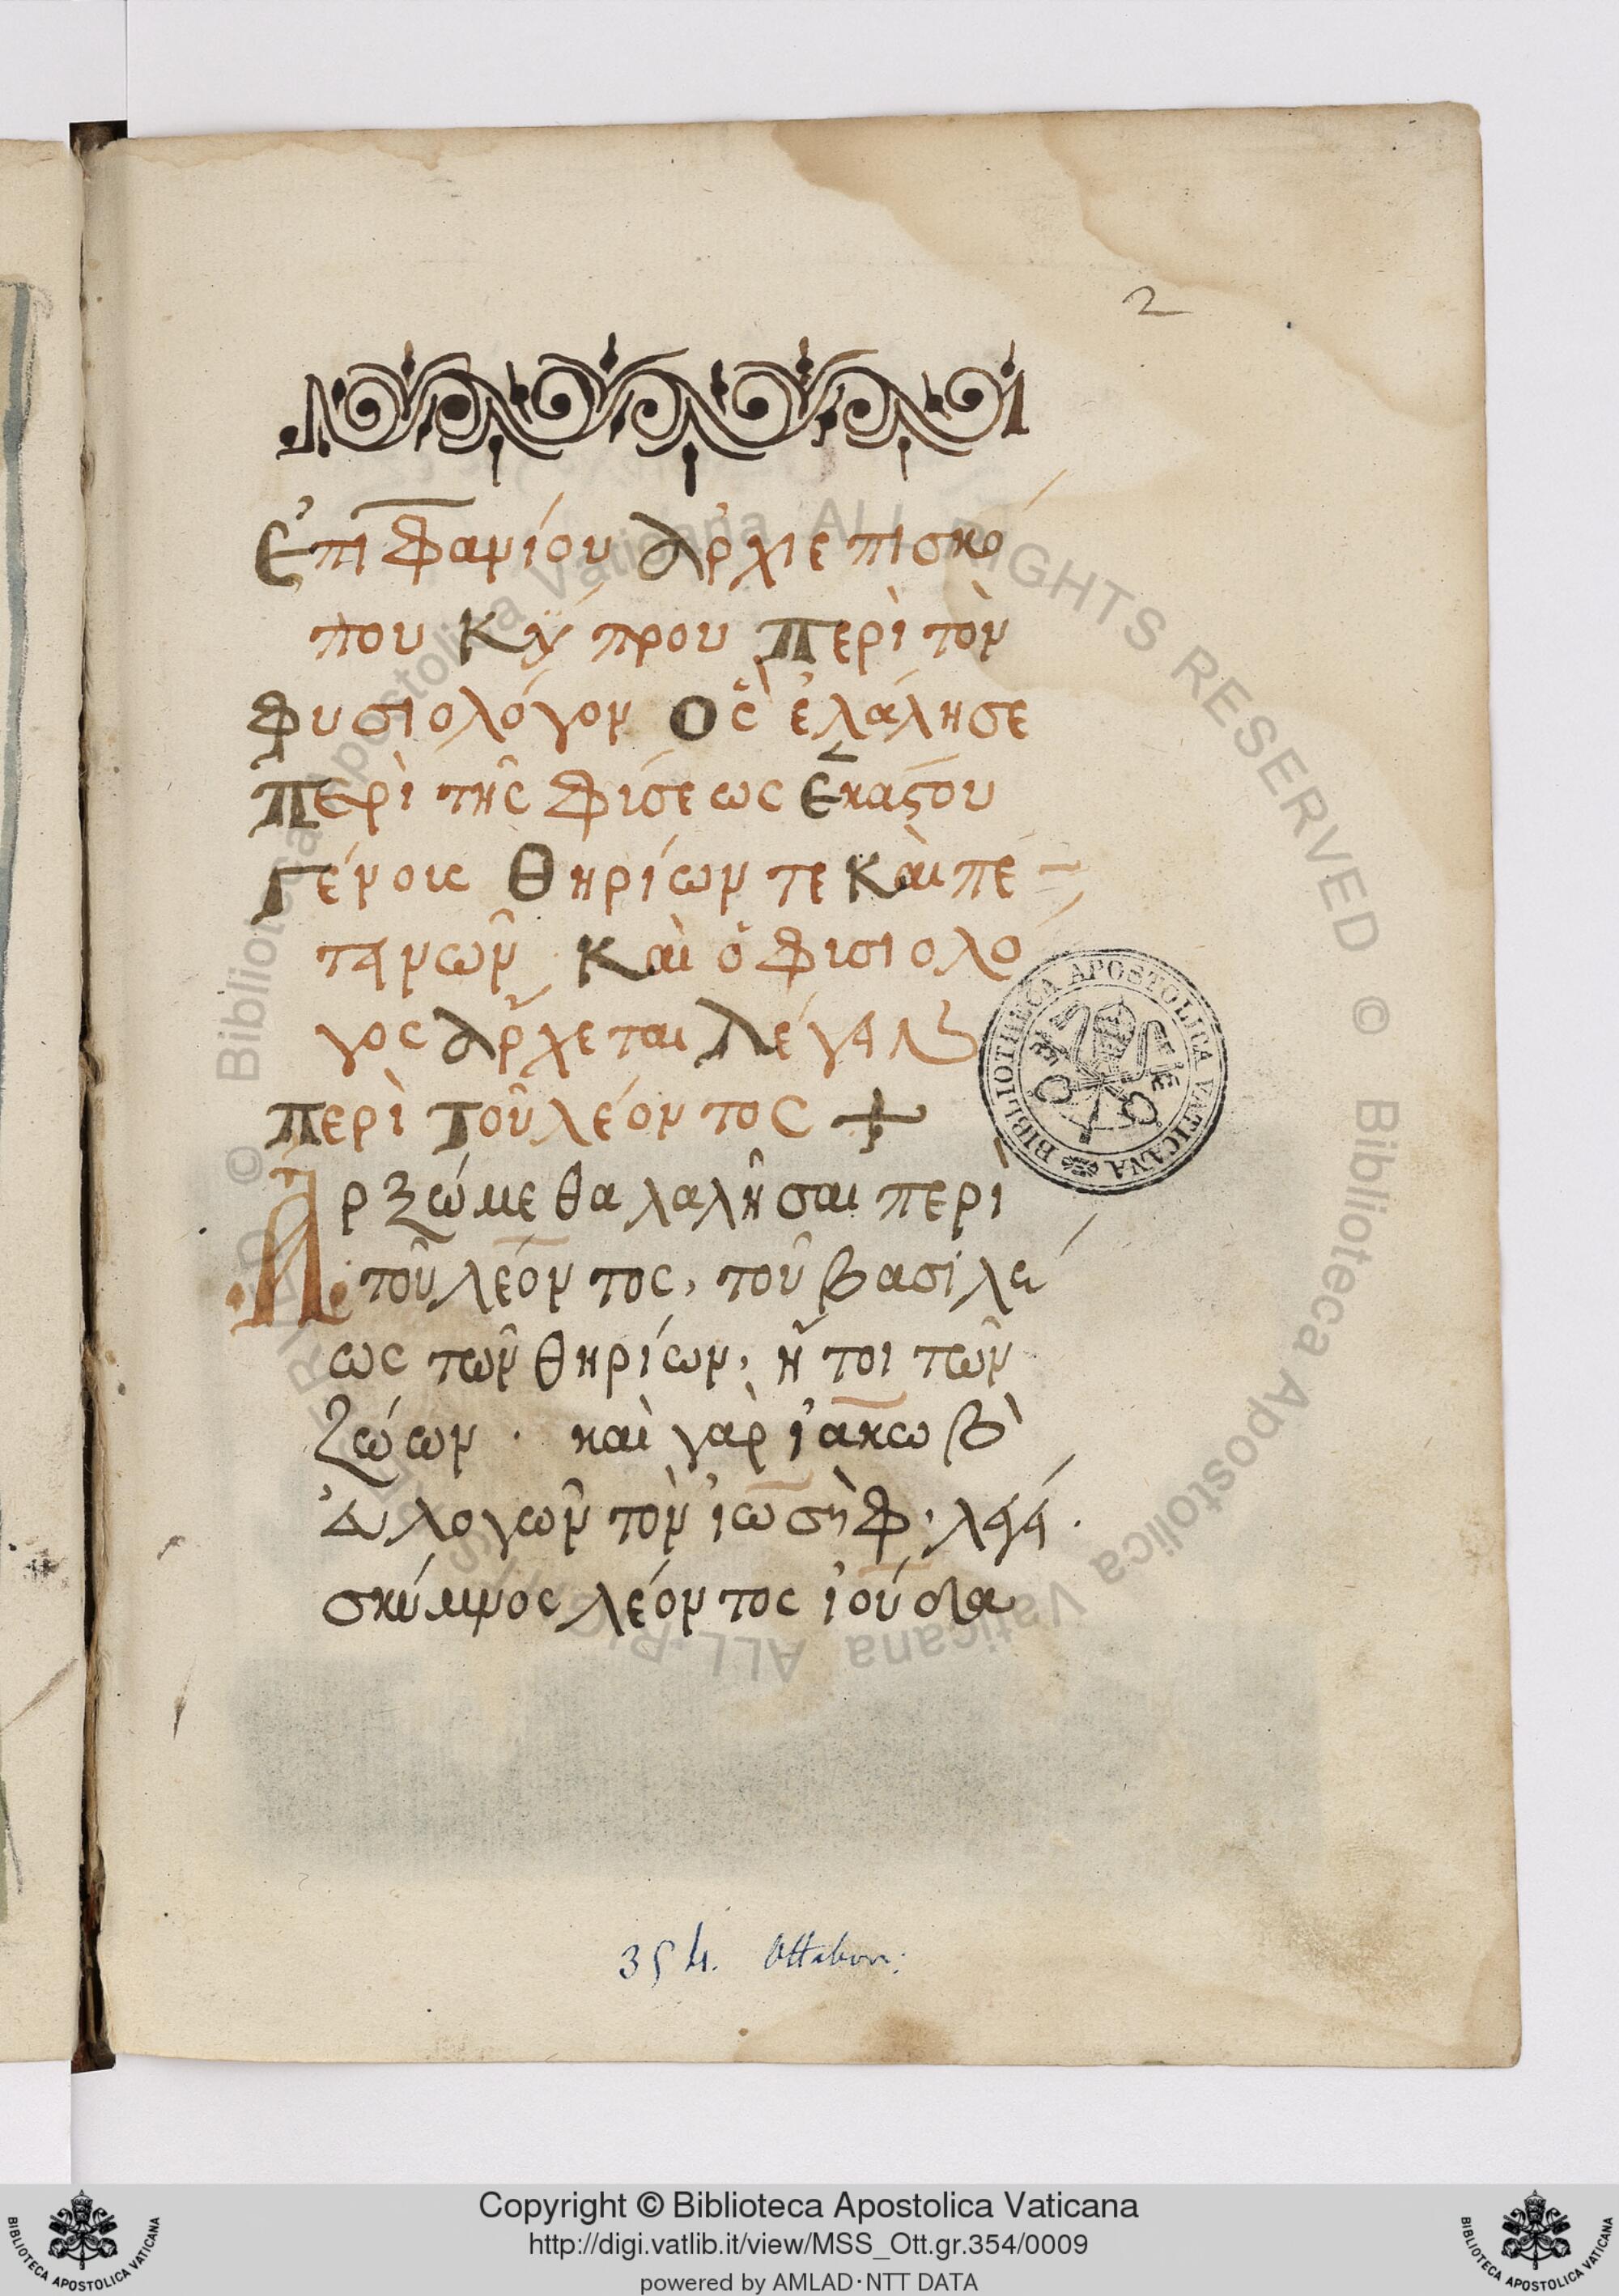 2
Ἐπιφανίου ἀρχιεπισκό
που Κύπρου Περὶ τὸν
Φυσιολόγον Ὃς ἐλάλησε
Περὶ τῆς Φίσεως Ἑκάστου
Γένοις Θηρίων τε Καὶ πε
τεινῶν Καὶ ὁ Φισιολό
γος ἄρχεται Λέγειν
Περὶ Τοῦ λέοντος +
Ἀρξώμεθα λαλῆσαι περὶ
τοῦ λέοντος, τοῦ βασιλέ
ως τῶν θηρίων, ἤτοι τῶν
ζώων. καὶ γὰρ ἰακὼβ
εὐλογῶν τὸν ἰωσὴφ, λέγει.
σκύμνος λέοντος ἰούδα
BIBLIOTHECA APOSTOLICA VATICANA
354. Ottobon:
© Biblioteca Apostolica Vaticana ALL RIGHTS RESERVED
© Biblioteca Apostolica Vaticana ALL RIGHTS RESERVED
Copyright © Biblioteca Apostolica Vaticana
http://digi.vatlib.it/view/MSS_Ott.gr.354/0009
powered by AMLAD·NTT DATA
BIBLIOTECA APOSTOLICA VATICANA
BIBLIOTECA APOSTOLICA VATICANA